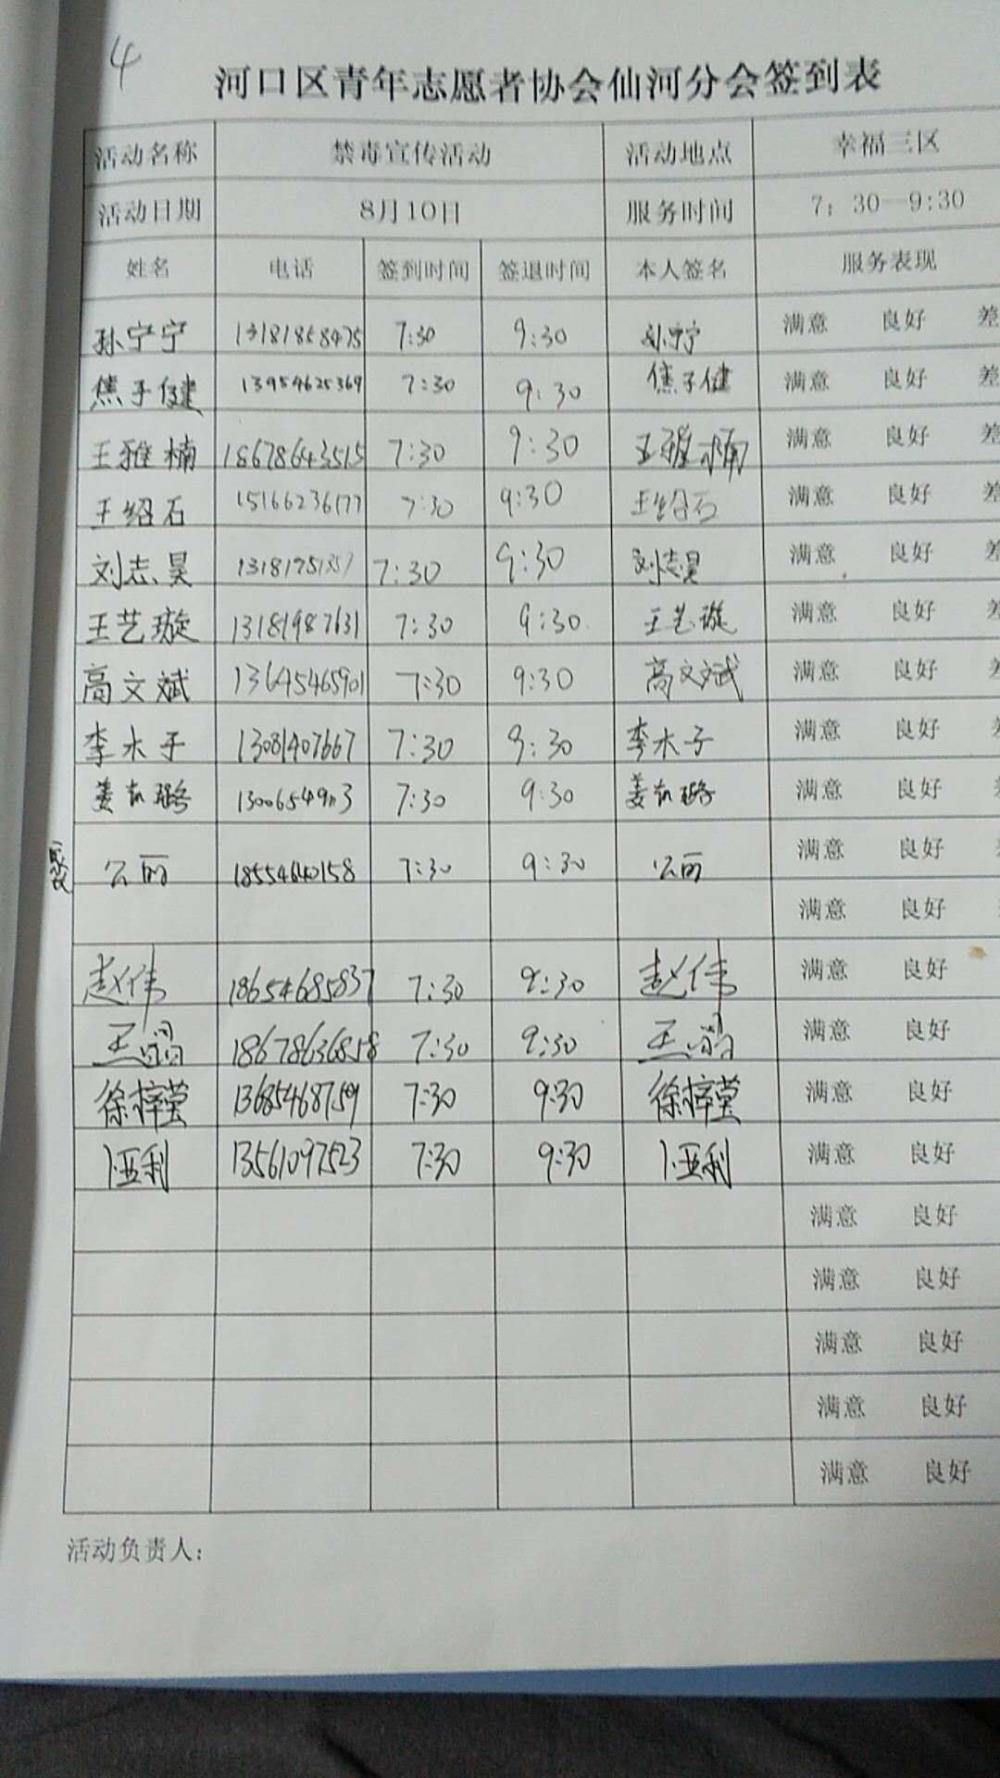 4
河口区青年志愿者协会仙河分会签到表
活动名称 禁毒宣传活动 活动地点 幸福三区
活动日期 8月10日 服务时间 7：30—9:30
姓名 电话 签到时间 签退时间 本人签名 服务表现
孙宁宁 13181858475 7:30 9:30 孙宁宁 满意 良好 差
焦子健 13954625369 7:30 9:30 焦子健 满意 良好 差
王雅楠 18678643515 7:30 9:30 王雅楠 满意 良好 差
王绍石 15166236177 7:30 9:30 王绍石 满意 良好 差
刘志昊 7:30 9:30 刘志昊 满意 良好 差
王艺璇 13181987631 7:30 9:30 王艺璇 满意 良好 差
高文斌 13645465901 7:30 9:30 高文斌 满意 良好 差
李木子 13081407667 7:30 9:30 李木子 满意 良好 差
姜 璐 7:30 9:30 姜 璐 满意 良好
公丽 18554640158 7:30 9:30 公丽 满意 良好
满意 良好
赵伟 18654685837 7:30 9:30 赵伟 满意 良好
王 18678636858 7:30 9:30 王 满意 良好
徐梓莹 13685468759 7:30 9:30 徐梓莹 满意 良好
卜亚利 13561097523 7:30 9:30 卜亚利 满意 良好
满意 良好
满意 良好
满意 良好
满意 良好
满意 良好
活动负责人：